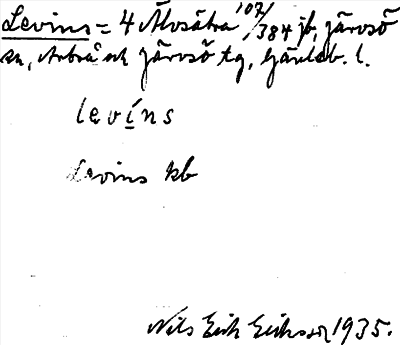 Levins = 4 Älvsätra 107/384 jb, Järvsö
sn, Arbrå och Järvsö tg, Gävleb. l.
levins
Levins kb
Nils Erik Eriksson 1935.